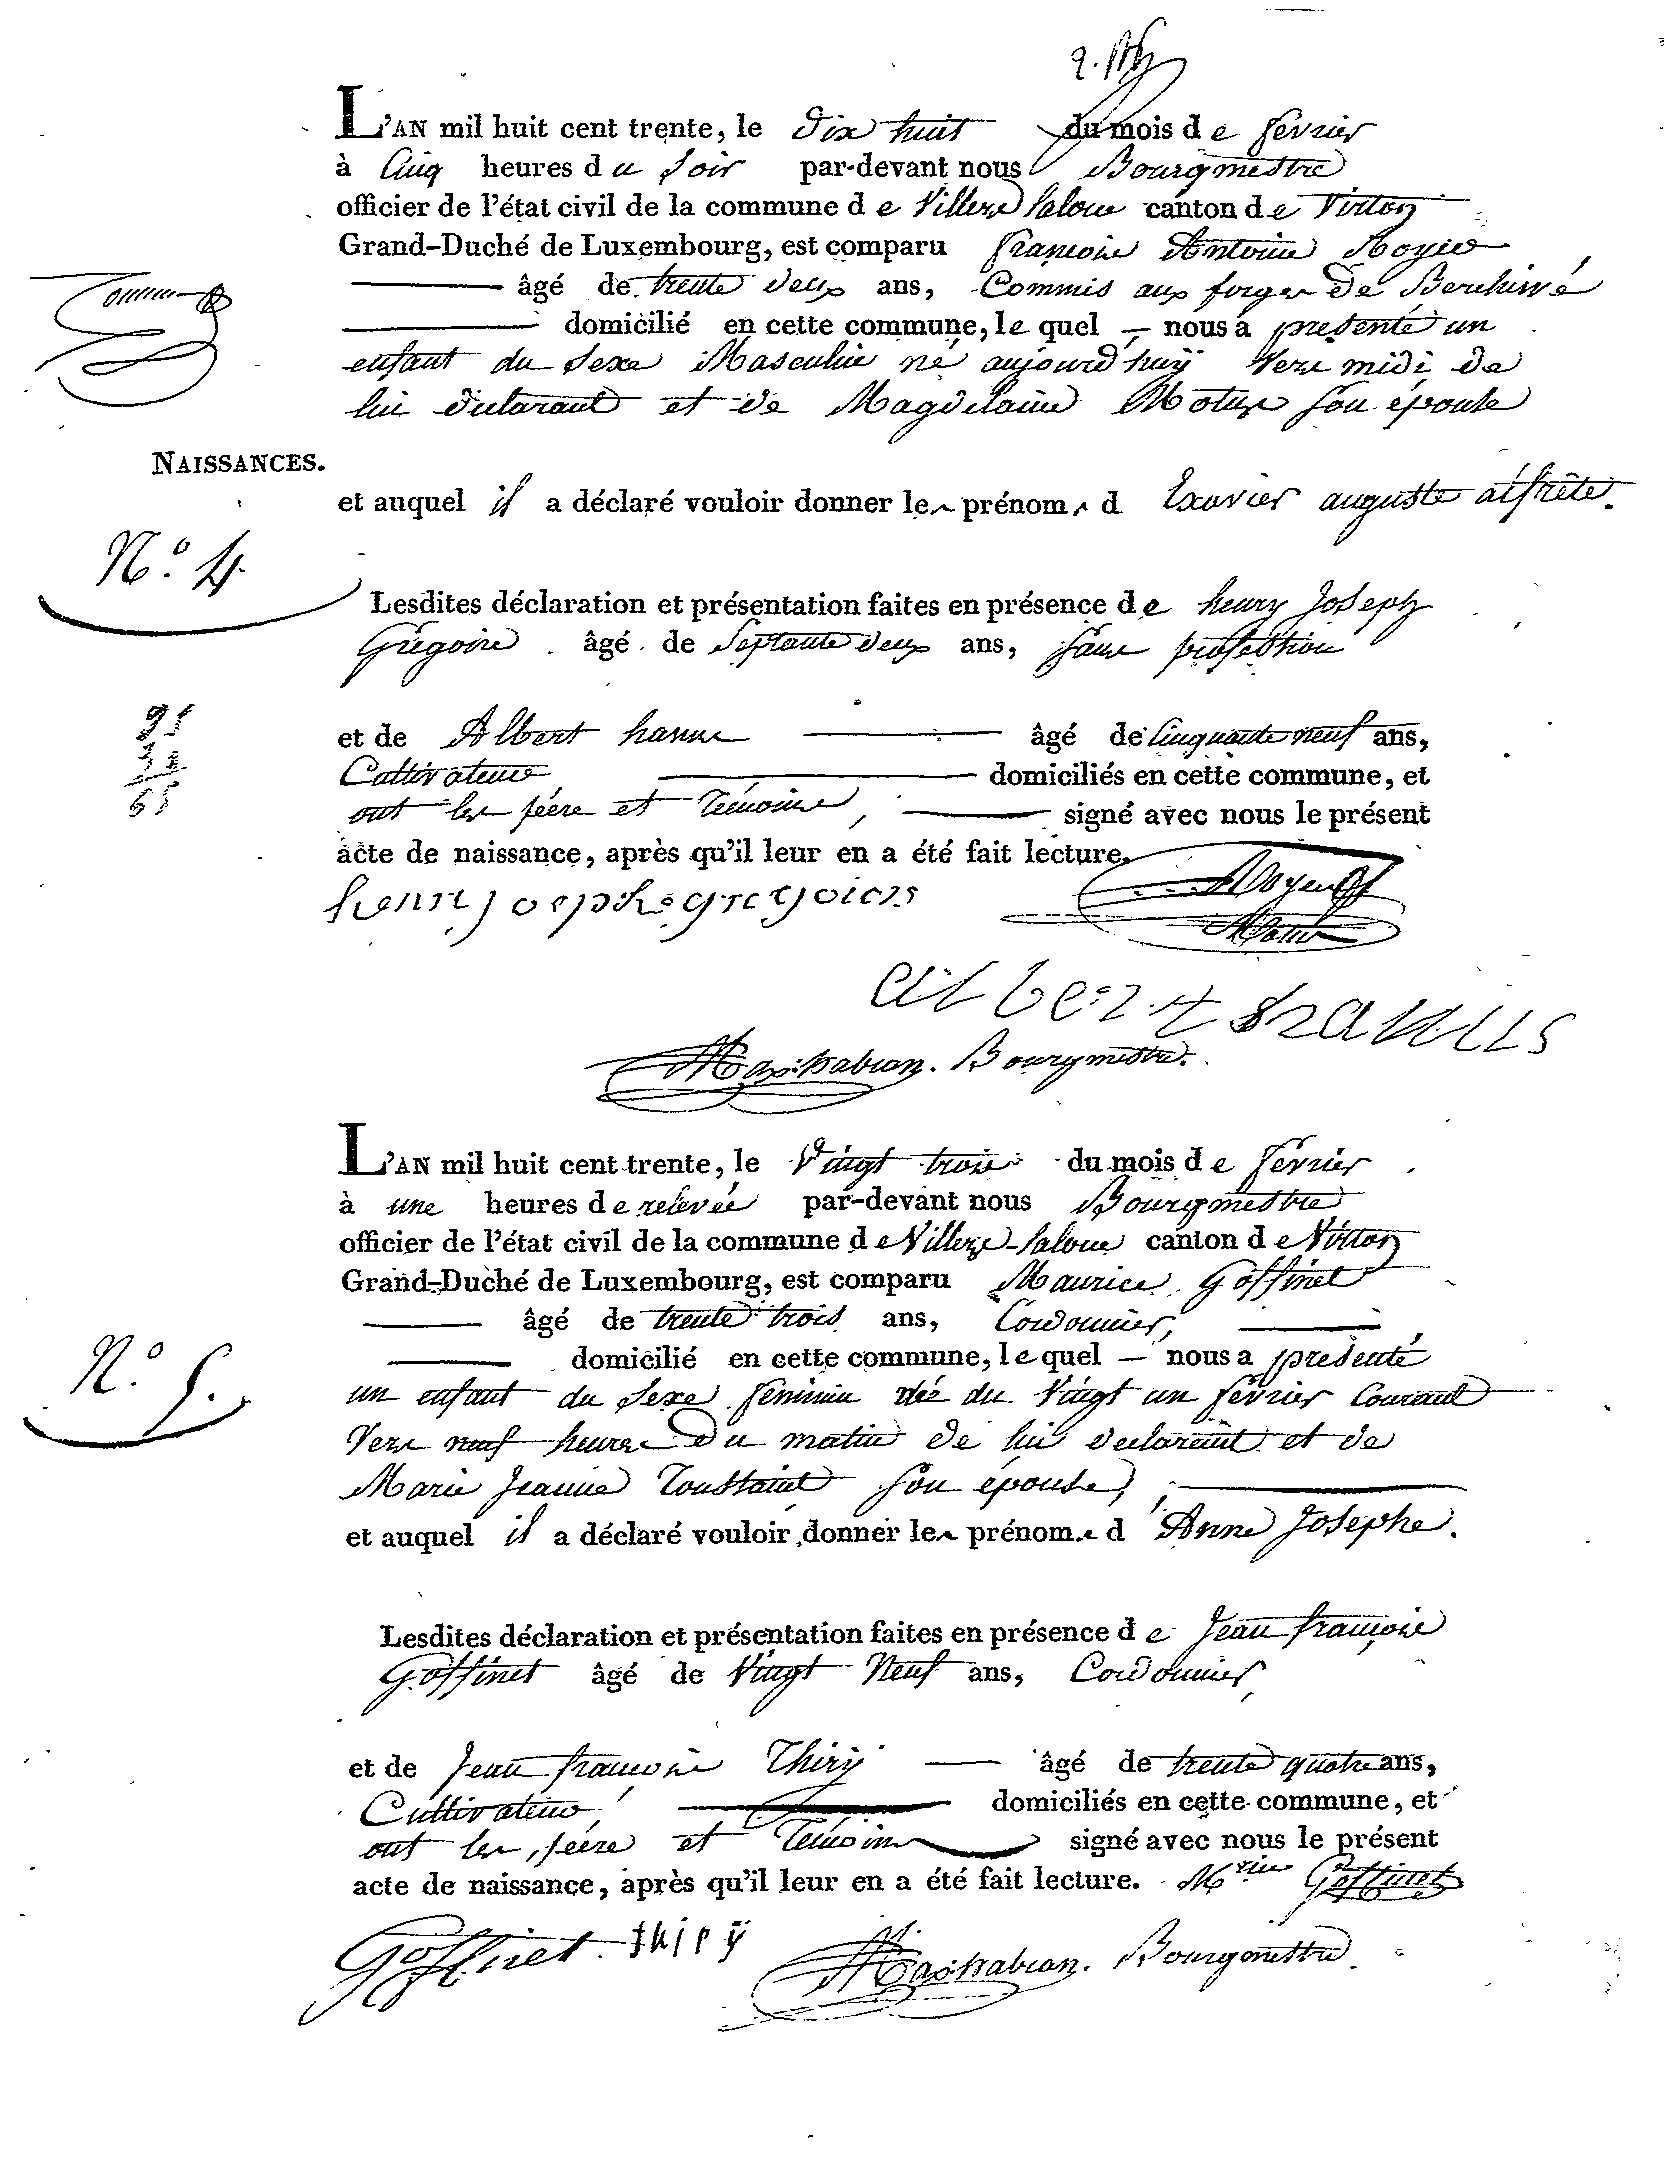 L'AN mil huit cent trente, le Dix huit du mois de fevrier
à Cinq heures du Soir par-devant nous Bourgmestre
officier de l'état civil de la commune de Villers Saloue canton de Virton
Grand-Duché de Luxembourg, est comparu françois Antoine
âgé de trente deux ans, Commis aux forges de Berchiwé
domicilié en cette commune, le quel nous a presenté un
enfant du Sexe Masculin né aujourd'huÿ Vers midi de
lui declarant et de Magdelaine son épouse
NAISSANCES.
et auquel il a déclaré vouloir donner les prénoms d Exavier auguste alfrète.
N.° 4.
Lesdites déclaration et présentation faites en présence de henry Joseph
Grégoire âgé de Septante deux ans, Sans profession
95
65
et de Albert hanus âgé de Cinquante neuf ans,
Cultivateur domiciliés en cette commune, et
ont les péere et Témoins, signé avec nous le présent
acte de naissance, après qu'il leur en a été fait lecture.
henri joseph gregoier
albert hanus
Bourgmestre.
L'AN mil huit cent trente, le Vingt trois du mois de fevrier
à une heures de relevée par-devant nous Bourgmestre
officier de l'état civil de la commune de Villers-Saloue canton de Virton
Grand-Duché de Luxembourg, est comparu Maurice Goffinet
âgé de trente trois ans, Cordonnier,
domicilié en cette commune, le quel nous a presenté
N.° 5.
un enfant du Sexe feminin née du Vingt un fevrier Courant
Vers neuf heures Du matin de lui declarant et de
Marie Jeanne Toussaint son épouse,
et auquel il a déclaré vouloir donner les prénoms d'Anne Josephe.
Lesdites déclaration et présentation faites en présence de Jean françois
Goffinet âgé de Vingt Neuf ans, Cordonnier,
et de Jean françois Thirÿ âgé de trente quatre ans,
Cultivateur, domiciliés en cette commune, et
ont les péere et Témoins signé avec nous le présent
acte de naissance, après qu'il leur en a été fait lecture. Goffinet
Goffinet. thirÿ Bourgmestre.